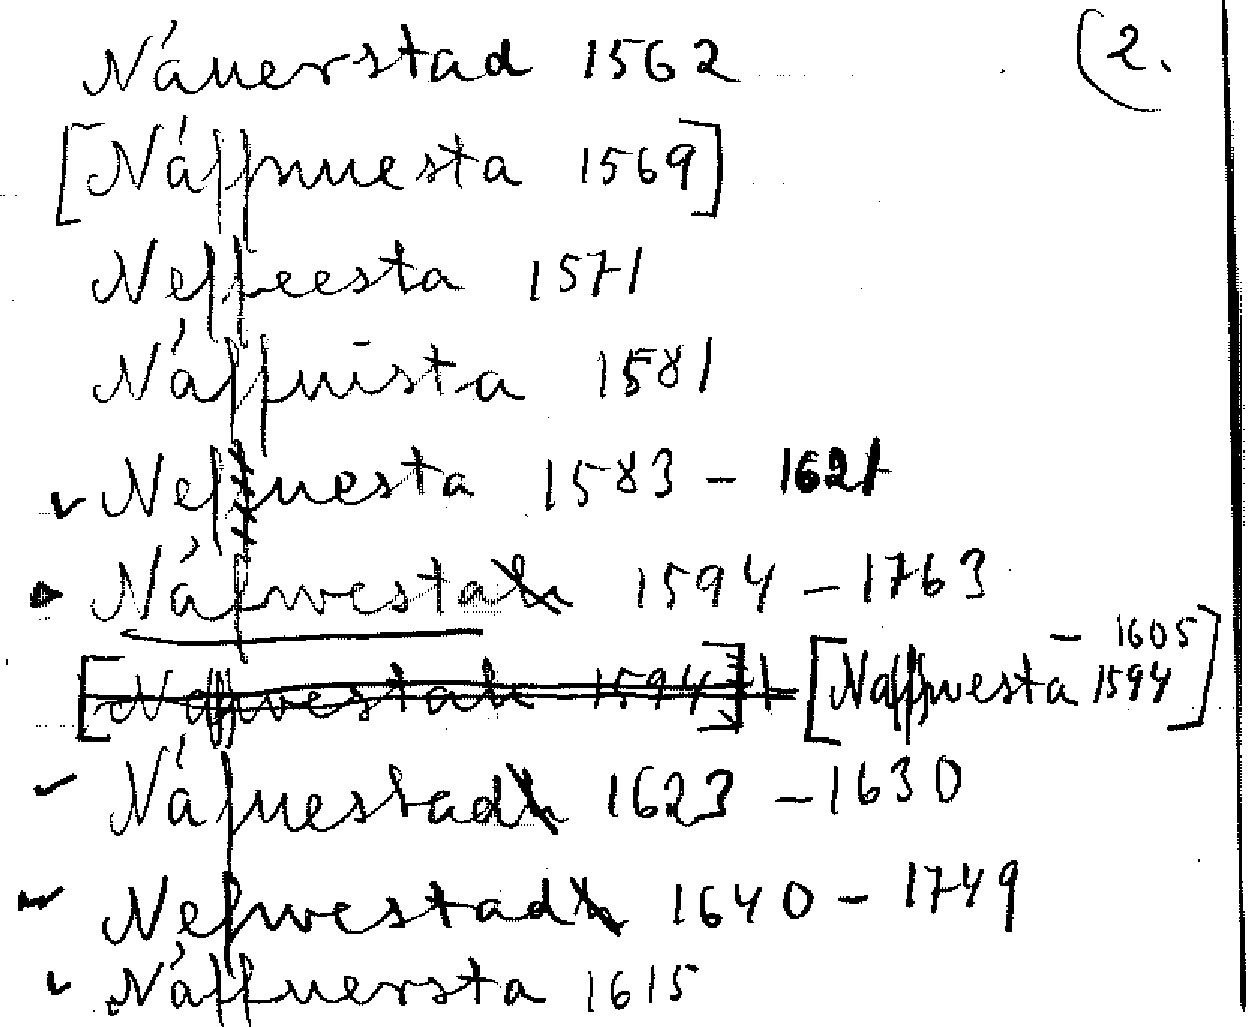 Náuerstad 1562 (2.
[Náffuuesta 1569]
Neffeesta 1571
Náffuista 1581
Nefuesta 1583 - 1621
Náfwesta 1594 - 1763
[Naffwestah 1594] [Naffwesta 1594 - 1605]
Náfuestad 1623 - 1630
Nefwestad 1640 - 1749
Náffuersta 1615